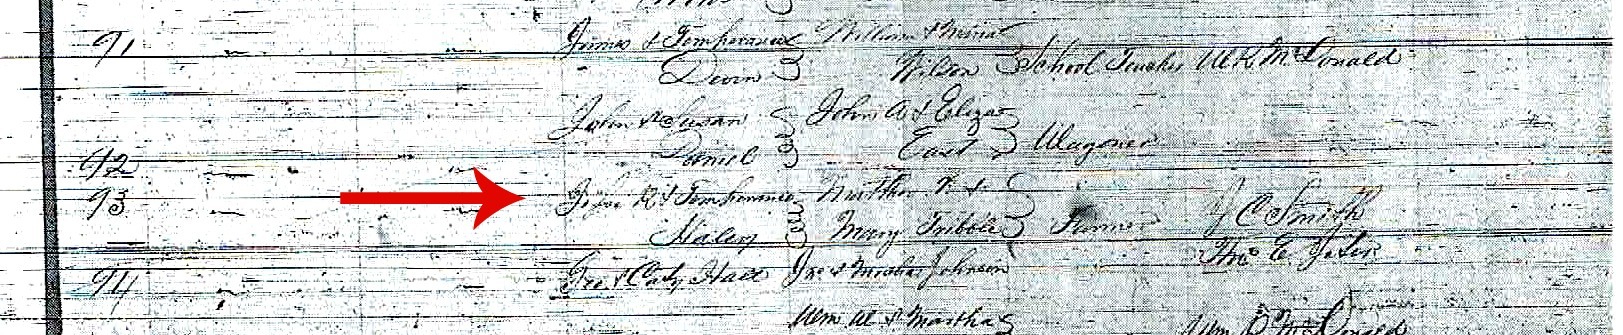 91 James & Temperance William & Mina
Devin Wilson School Teacher W K McDonald
John & Susan John A & Eliza
92 Daniel East Wagoner
93 John R & Temperance Nathan &
Haley Mary Tribble Farmer J C Smith
94 Geo & Caty Hall Jno & Johnson Thos E
Wm W & Martha Wm McDonald